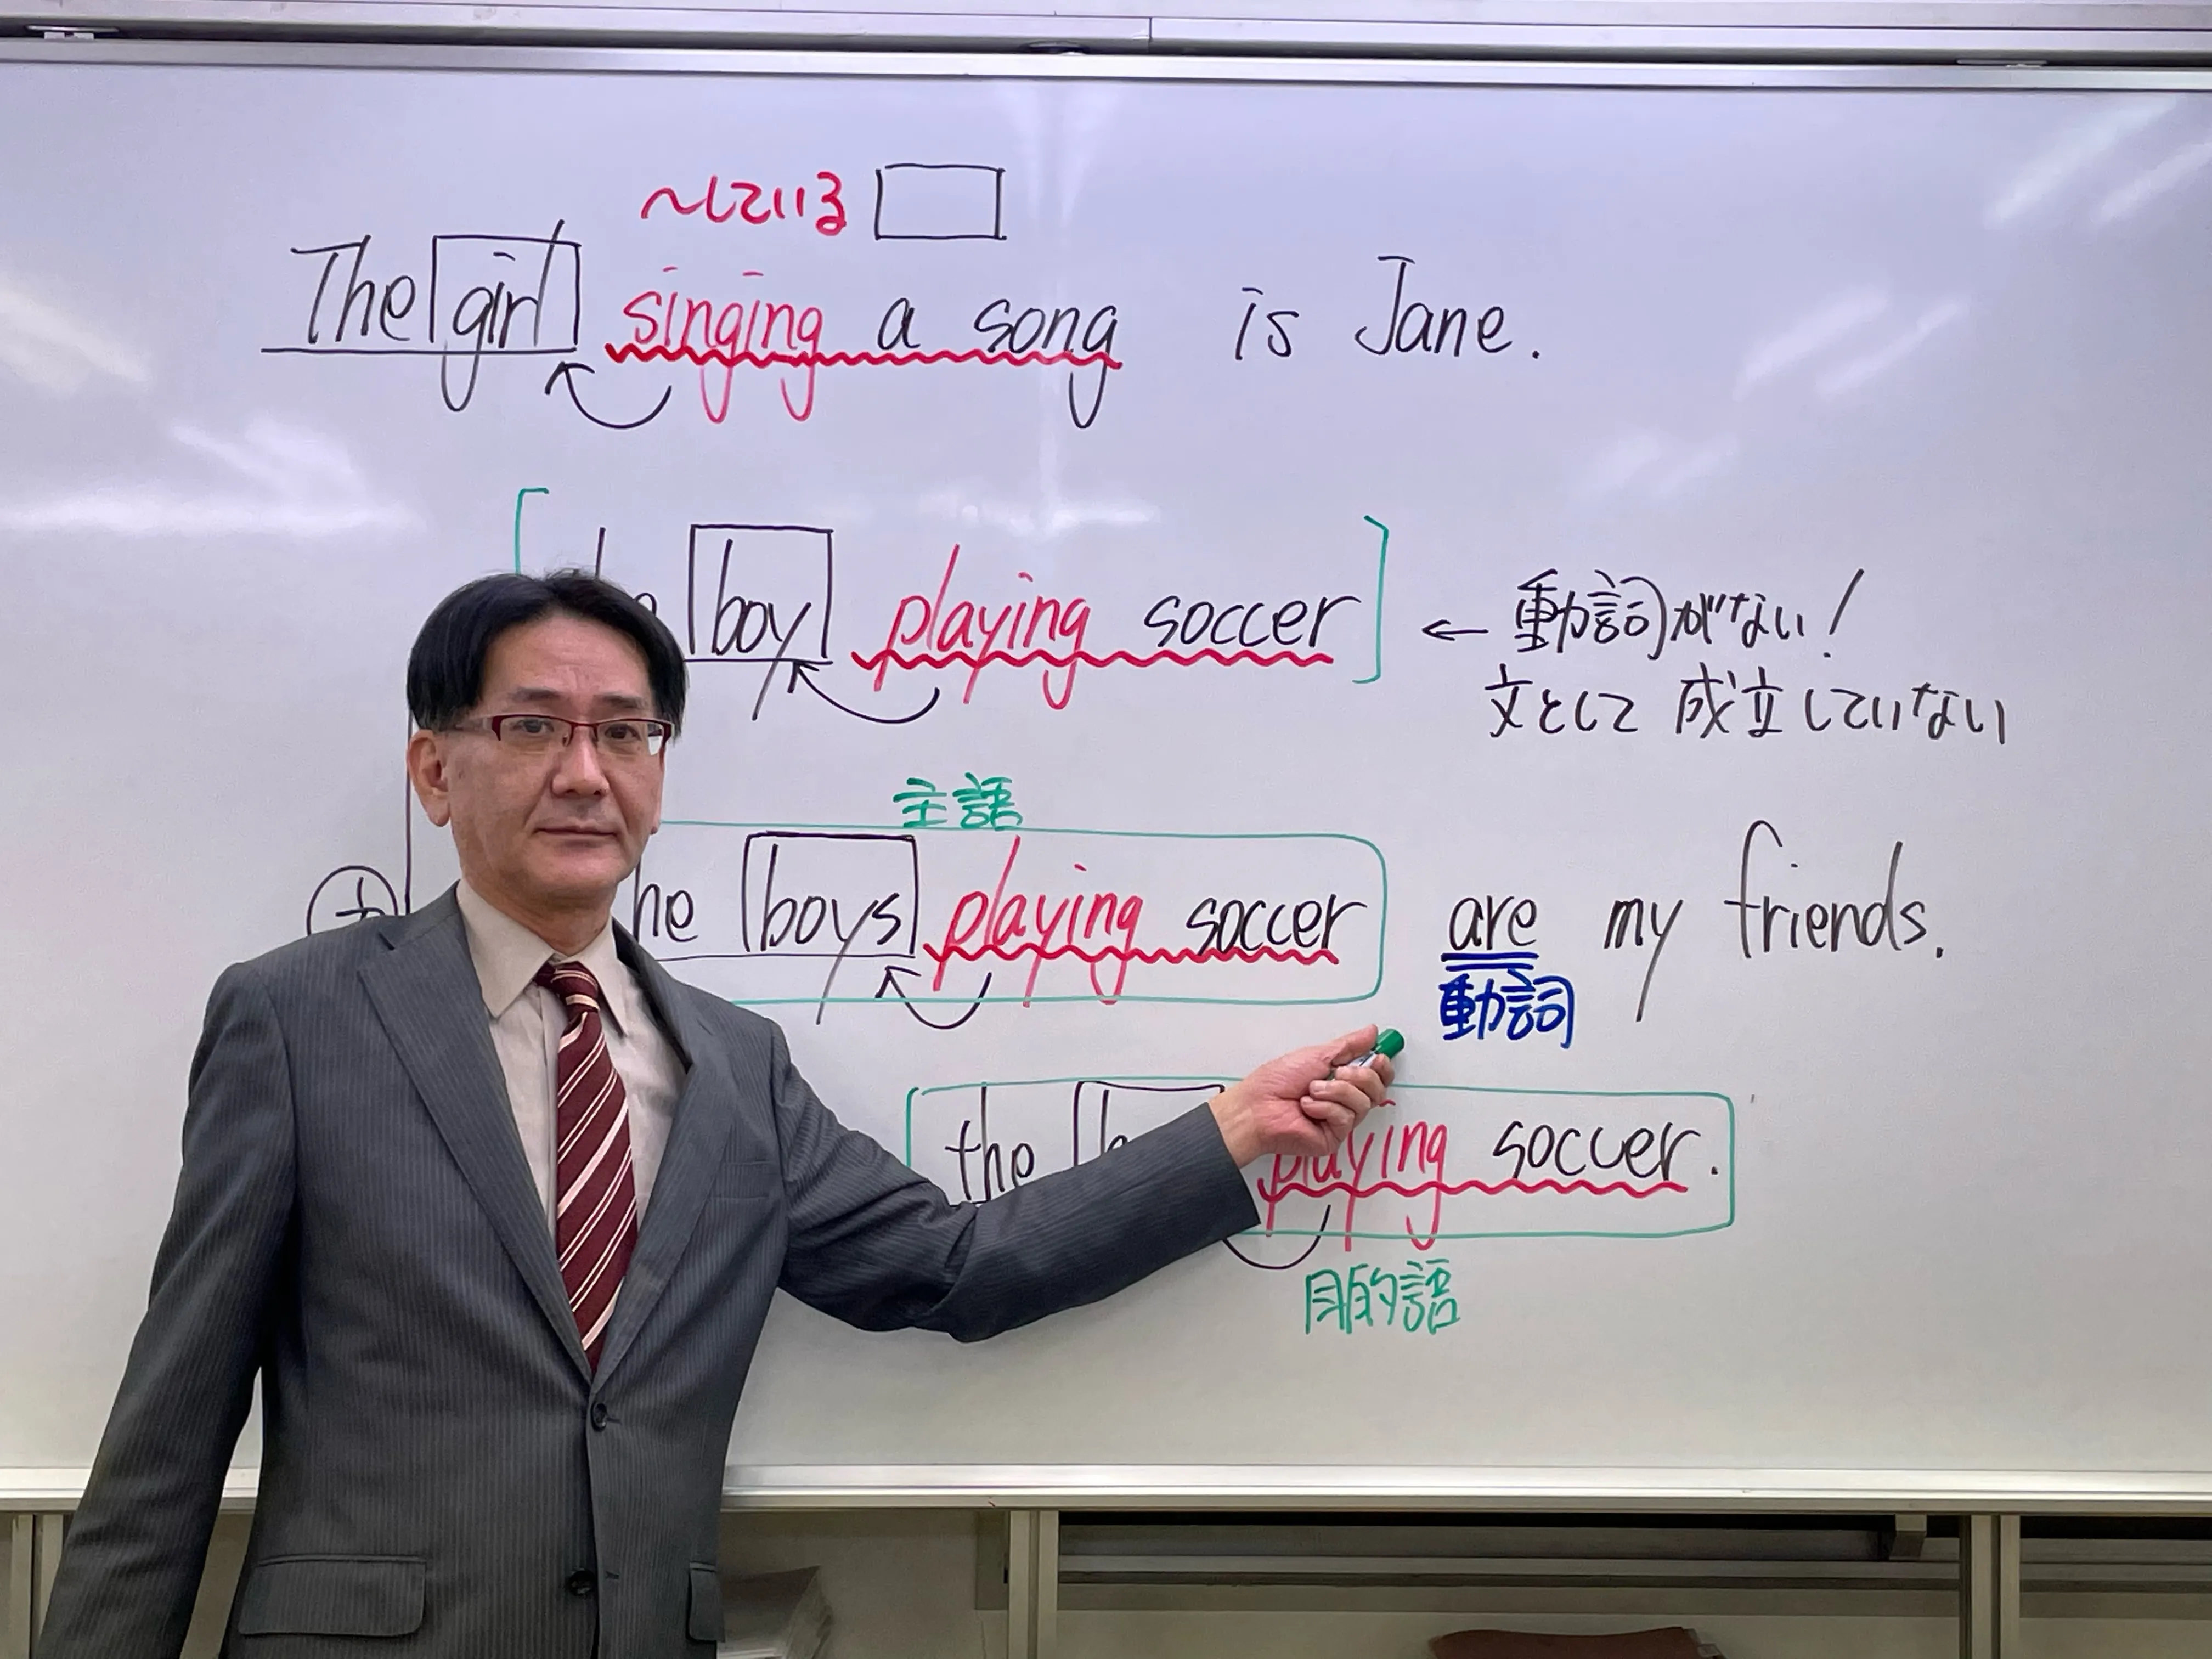 ～している
The girl singing a song is Jane.
boy playing soccer ← 動詞がない!
文として 成立していない
主語
boys playing soccer are my friends.
動詞
the playing soccer.
目的語